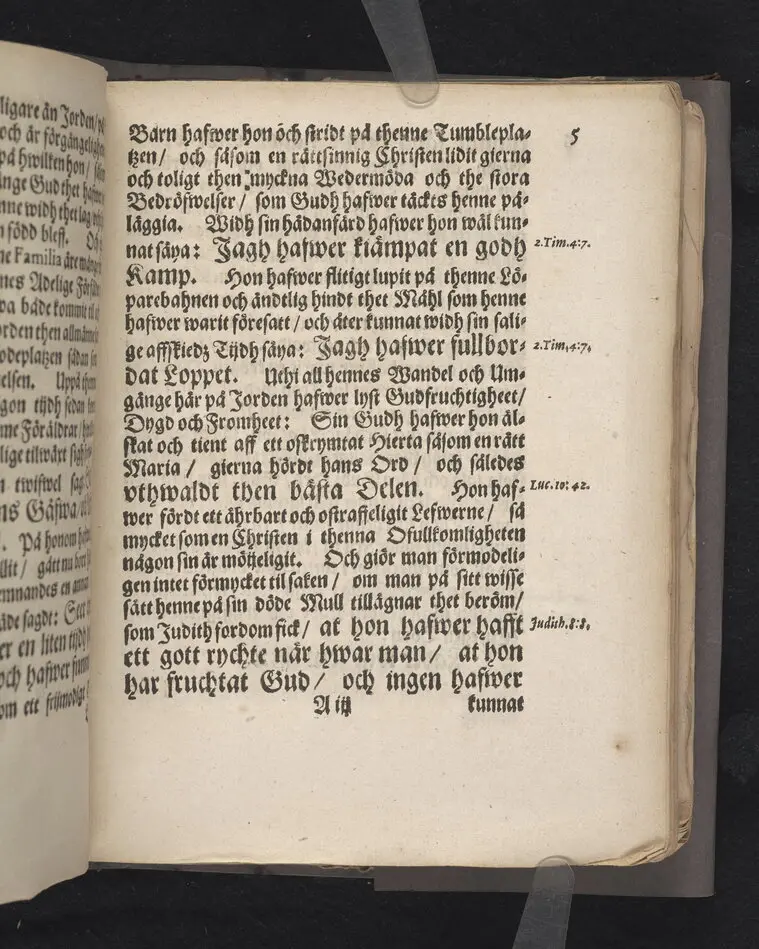 ligare än Jorden/
och är förgängelig
på hwilken hon/
Gud thet
widh thet
född bleff.
Familia äre
nes Adelige
både komne
rden then allmänne
odeplatzen sådan
elsen. Uppå
gon tijdh sedan
me Föräldrar/
lige tilwäxt
n twifwel
. På honom
gått nu
en
sagdt:
er en liten tijdh
och hafwer
om ett frijmodigt
5
Barn hafwer hon och stridt på thenne Tumblepla-
tzen/ och såsom en rättsinnig Christen lidit gierna
och toligt then myckna Wedermöda och the stora
Bedröfwelser/ som Gudh hafwer täckts henne på-
läggia. Widh sin hädanfärd hafwer hon wäl kun-
nat säya: Jagh hafwer kiämpat en godh
2.Tim.4:7.
Kamp. Hon hafwer flitigt lupit på thenne Lö-
parebahnen och ändtlig hindt thet Mähl som henne
hafwer warit föresatt/ och åter kunnat widh sin sali-
ge affskiedz Tijdh säya: Jagh hafwer fullbor-
2.Tim.4:7.
dat Loppet. Uthi all hennes Wandel och Um-
gänge här på Jorden hafwer lyst Gudfruchtigheet/
Dygd och Fromheet: Sin Gudh hafwer hon äl-
skat och tient aff ett oskrymtat Hierta såsom en rätt
Maria/ gierna hördt hans Ord/ och således
vthwaldt then bästa Delen. Hon haf-
Luc.10:42.
wer fördt ett ährbart och ostraffeligit Lefwerne/ så
mycket som en Christen i thenna Ofullkomligheten
någon sin är möijeligit. Och giör man förmodeli-
gen intet förmycket til saken/ om man på sitt wisse
sätt henne på sin döde Mull tillägnar thet beröm/
som Judith fordom fick/ at hon hafwer hafft
Judith.8:8.
ett gott rychte när hwar man/ at hon
har fruchtat Gud/ och ingen hafwer
A iij kunnat